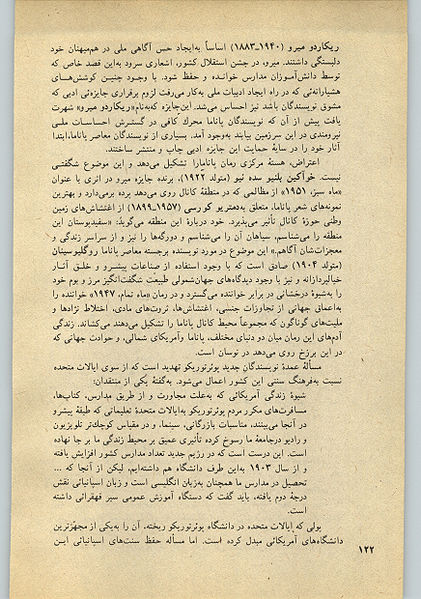 ریکاردو میرو (۱۹۴۰ـ۱۸۸۳) اساساً به‌ایجاد حس آگاهی ملی در هم‌میهنان خود
دلبستگی داشتند. میرو، در جشن استقلال کشور، اشعاری سرود به‌این قصد خاص که
توسط دانش‌آموزان مدارس خوانده و حفظ شود. با وجود چنین کوشش‌های
هشیارانه‌ئی که در راه ایجاد ادبیات ملی به‌کار می‌رفت لزوم برقراری جایزه‌ئی ادبی که
مشوق نویسندگان باشد نیز احساس می‌شد. این‌جایزه که‌به‌نام «ریکاردو میرو» شهرت
یافت بیش از آن که نویسندگان پاناما محرك کافی در گسترش احساسات ملی
نیرومندی در این سرزمین بیابند به‌وجود آمد. بسیاری از نویسندگان معاصر پاناما، ابتدا
آثار خود را در سایهٔ حمایت این جایزه ادبی چاپ و منتشر ساختند.
اعتراض، هستهٔ مرکزی رمان پاناما را تشکیل می‌دهد و این موضوع شگفتی
نیست. خوآکین بلنیو سده نیو (متولد ۱۹۲۲)، برنده جایزه میرو در اثری با عنوان
«ماه سبز، ۱۹۵۱» از مظالمی که در منطقهٔ کانال روی می‌دهد پرده برمی‌دارد و بهترین
نمونه‌های شعر پاناما، متعلق به‌دمتریو کورسی (۱۹۵۷ـ۱۸۹۹) از اغتشاش‌های زمین
وطنی حوزهٔ کانال تأثیر می‌پذیرد. خود دربارهٔ این منطقه می‌گوید: «سفیدپوستان این
منطقه را می‌شناسم، سیاهان آن را می‌شناسم و دورگه‌ها را نیز، و از سراسر زندگی و
معجزات‌شان آگاهم.» این موضوع در مورد نویسنده برجسته معاصر پاناما روگلیوسینان
(متولد ۱۹۰۴) صادق است که با وجود استفاده از صناعات پیشرو و خلق آثار
خیالپردازانه و نیز با وجود دیدگاه‌های جهان‌شمولی طبیعت شگفت‌انگیز مرز و بوم خود
را به‌شیوهٔ درخشانی در برابر خواننده می‌گسترد و در رمان «ماه تمام، ۱۹۴۷» خواننده را
به‌اعماق جهانی از تجاوزات جنسی، اغتشاش‌ها، ثروت‌های مادی، اختلاط نژادها و
ملیت‌های گوناگون که مجموعاً محیط کانال پاناما را تشکیل می‌دهند می‌کشاند. زندگی
آدم‌های این رمان میان دو دنیای مختلف، پاناما وآمریکای شمالی، و حوادث جهانی که
در این برزخ روی می‌دهد در نوسان است.
مسألهٔ عمدهٔ نویسندگان جدید پوئرتوریکو تهدید است که از سوی ایالات متحده
نسبت به‌فرهنگ سنتی این کشور اعمال می‌شود. به‌گفتهٔ یکی از منتقدان:
شیوهٔ زندگی آمریکائی که به‌علت مجاورت و از طریق مدارس، کتاب‌ها،
مسافرت‌های مکرر مردم پوئرتوریکو به‌ایالات متحدهٔ تعلیماتی که طبقهٔ پیشرو
در آنجا می‌بینند، مناسبات بازرگانی، سینما، و در مقیاس کوچك‌تر تلویزیون
و رادیو درجامعهٔ ما رسوخ کرده تأثیری عمیق بر محیط زندگی ما بر جا نهاده
است. این درست است که در رژیم جدید تعداد مدارس کشور افزایش یافته
و از سال ۱۹۰۳ به‌این طرف دانشگاه هم داشته‌ایم، لیکن از آنجا که ...
تحصیل در مدارس ما همچنان به‌زبان انگلیسی است و زبان اسپانیائی نقش
درجهٔ دوم یافته، باید گفت که دستگاه آموزش عمومی سیر قهقرائی داشته
است.
پولی که ایالات متحده در دانشگاه پوئرتوریکو ریخته، آن را به‌یکی از مجهّزترین
دانشگاه‌های آمریکائی مبدل کرده است. اما مسأله حفظ سنت‌های اسپانیائی این
۱۲۲